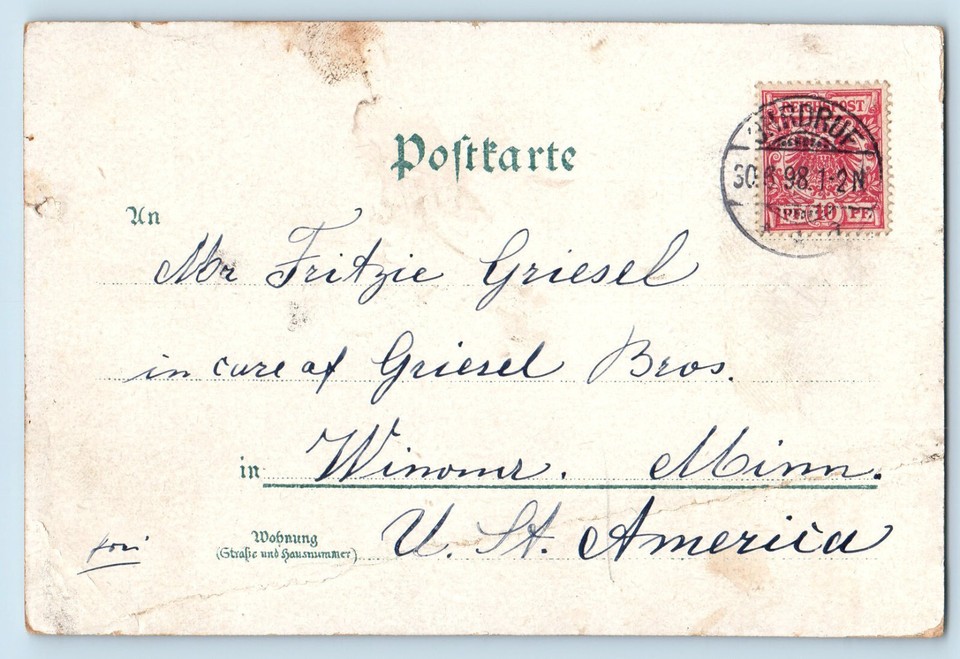 Postkarte
REICHSPOST
30. 98. 1-2 N
PF. 10 PF.
An
Mr Fritzie Griesel
in care of Griesel Bros.
in Winona. Minn.
Wohnung
(Straße und Hausnummer)
U. St. America